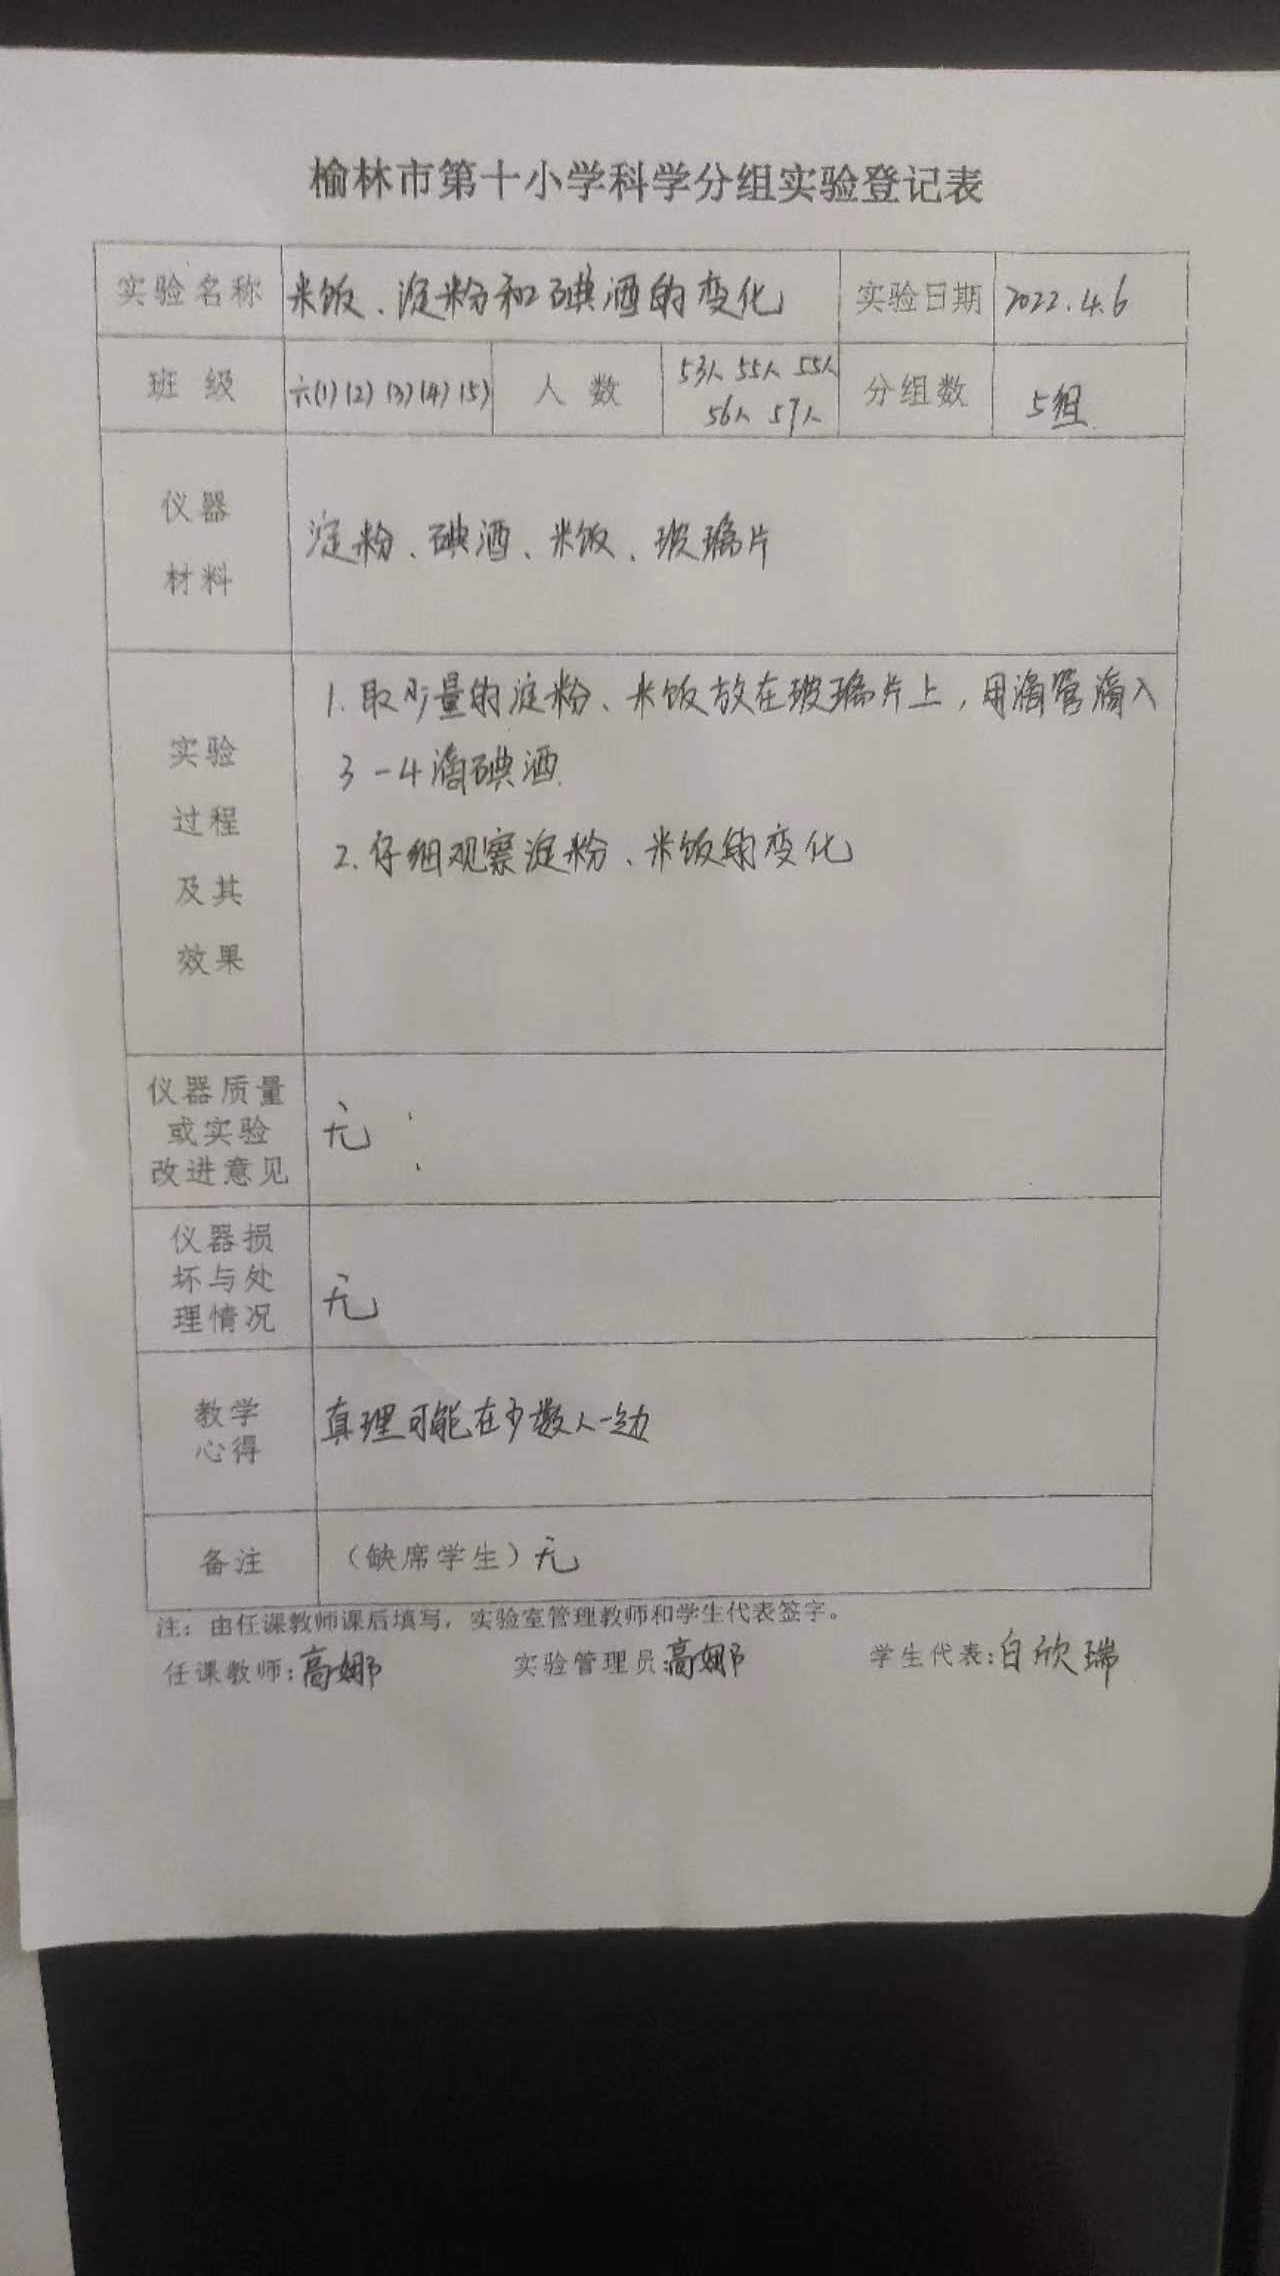 榆林市第十小学科学分组实验登记表
实验名称 米饭、淀粉和碘酒的变化 实验日期 2022.4.6
班级 六(1)(2)(3)(4)(5) 人数 53人 55人 55人 56人 57人 分组数 5组
仪器
材料
淀粉、碘酒、米饭、玻璃片
实验
过程
及其
效果
1.取少量的淀粉、米饭放在玻璃片上,用滴管滴入
3-4滴碘酒.
2.仔细观察淀粉、米饭的变化
仪器质量
或实验
改进意见
无
仪器损
坏与处
理情况
无
教学
心得
真理可能在少数人一边
备注 (缺席学生)无
注:由任课教师课后填写,实验室管理教师和学生代表签字。
任课教师:高娜 实验管理员:高娜 学生代表:白欣瑞